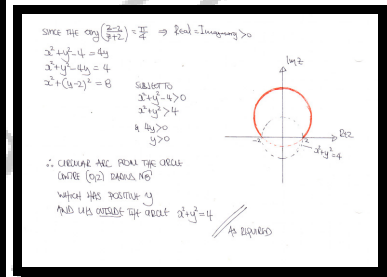 SINCE THE arg(z-2/z+2) = π/4 ⇒ Real = Imaginary > 0
x² + y² - 4 = 4y
x² + y² - 4y = 4
x² + (y-2)² = 8
SUBJECT TO
x² + y² - 4 > 0
x² + y² > 4
& 4y > 0
y > 0
Im z
Re z
-2
2
x² + y² = 4
∴ CIRCULAR ARC FROM THE CIRCLE
CENTRE (0,2) RADIUS √8
WHICH HAS POSITIVE y
AND LIES OUTSIDE THE CIRCLE x² + y² = 4
AS REQUIRED